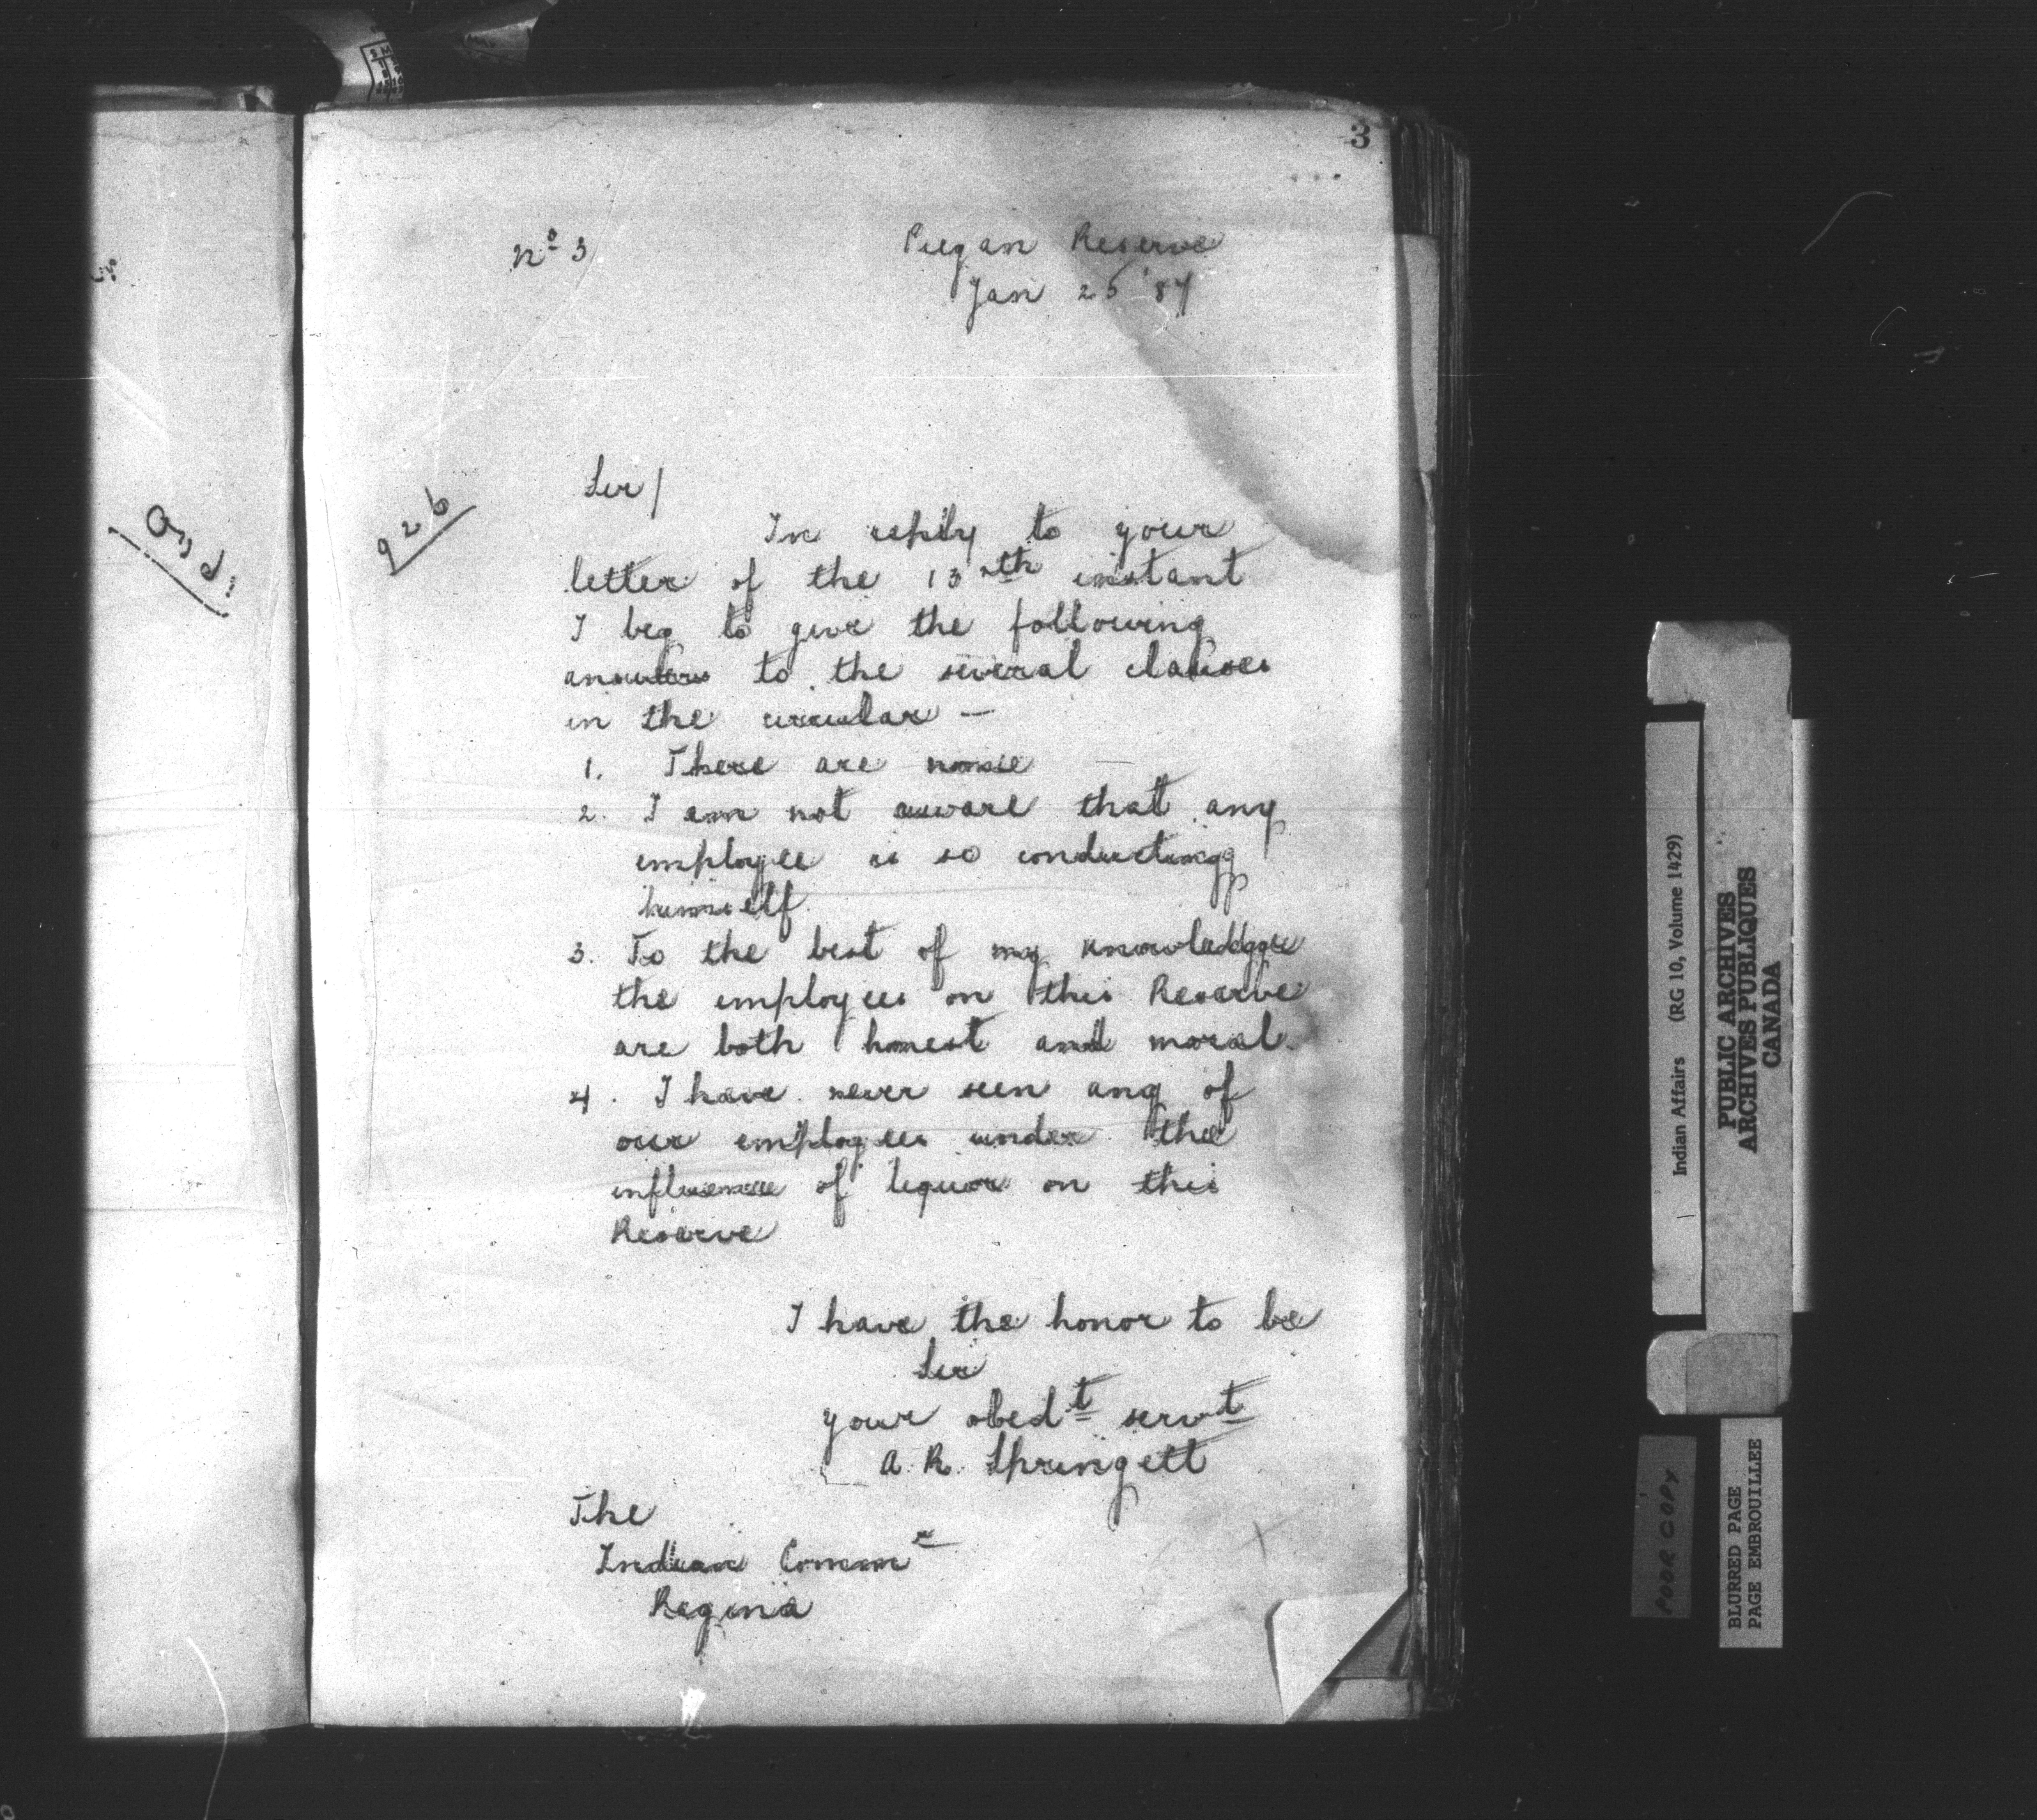 3
Nº 3
Piegan Reserve
Jan 25 '87
926
Sir/
In reply to your
letter of the 13th instant
I beg to give the following
answers to the several clauses
in the circular —
1. There are none
2. I am not aware that any
employee is so conducting
himself
3. To the best of my knowledge
the employees on this Reserve
are both honest and moral.
4. I have never seen any of
our employees under the
influence of liquor on this
Reserve
I have the honor to be
Sir
your obedt servt
A. R. Springett
The
Indian Commr
Regina
Indian Affairs (RG 10, Volume 1429)
PUBLIC ARCHIVES
ARCHIVES PUBLIQUES
CANADA
POOR COPY
BLURRED PAGE
PAGE EMBROUILLEE